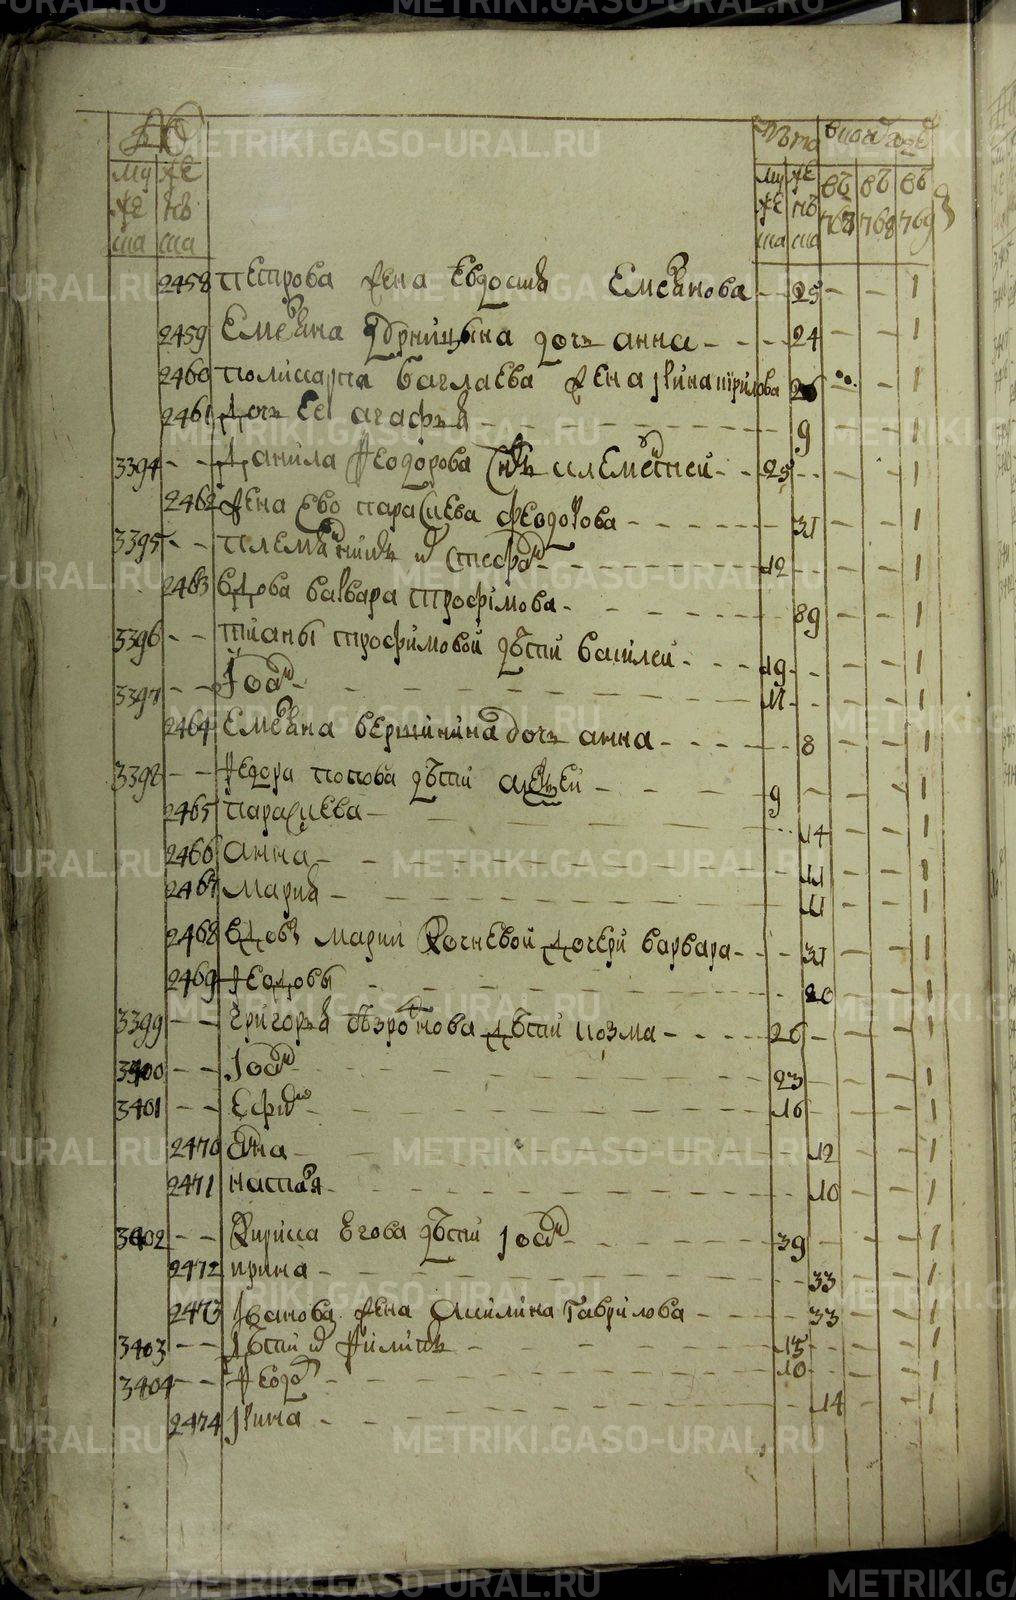 Лета в коих годех
му же ска
же нь ска
му же ска
же нь ска
въ 767
въ 768
въ 769
2458 петрова жена Евдокия Емельянова - - 25 - - 1
2459 Емельяна дочь анна - - - 24 - - 1
2460 поликарпа баглаева жена ирина кирилова 26 - 1
2461 дочь Ее агафья - - - 9 - - 1
3394 - - данила Феодорова алемпей - - 25 - - - 1
2462 жена Ево параскева феодорова - - - 31 - - 1
3395 - - племянник стефан - - - 12 - - - 1
2463 вдова варвара трофимова - - - 89 - - 1
3396 - - трофимовой дети василей - - - 19 - - - 1
3397 - - Иоан - - - 11 - - - 1
2464 Емельяна вершинина дочь анна - - - 8 - - 1
3398 - - Федора попова дети алексей - - - 9 - - - 1
2465 параскева - - - 14 - - 1
2466 анна - - - 11 - - 1
2467 мария - - - 11 - - 1
2468 вдовы марии Кочневой дочери варвара - - - 31 - - 1
2469 - - - 20 - - 1
3399 - - григорья дети козма - - - 26 - - - 1
3400 - - Иоан - - - 23 - - - 1
3401 - - Ефим - - - 16 - - - 1
2470 анна - - - 12 - - 1
2471 настасья - - - 10 - - 1
3402 - - Кирилла Егова дети Иоан - - - 39 - - - 1
2472 ирина - - - 33 - - 1
2473 Иванова жена акилина Гаврилова - - - 33 - - 1
3403 - - дети филипъ - - - 15 - - - 1
3404 - - Феодор - - - 10 - - - 1
2474 ирина - - - 14 - - 1
METRIKI.GASO-URAL.RU